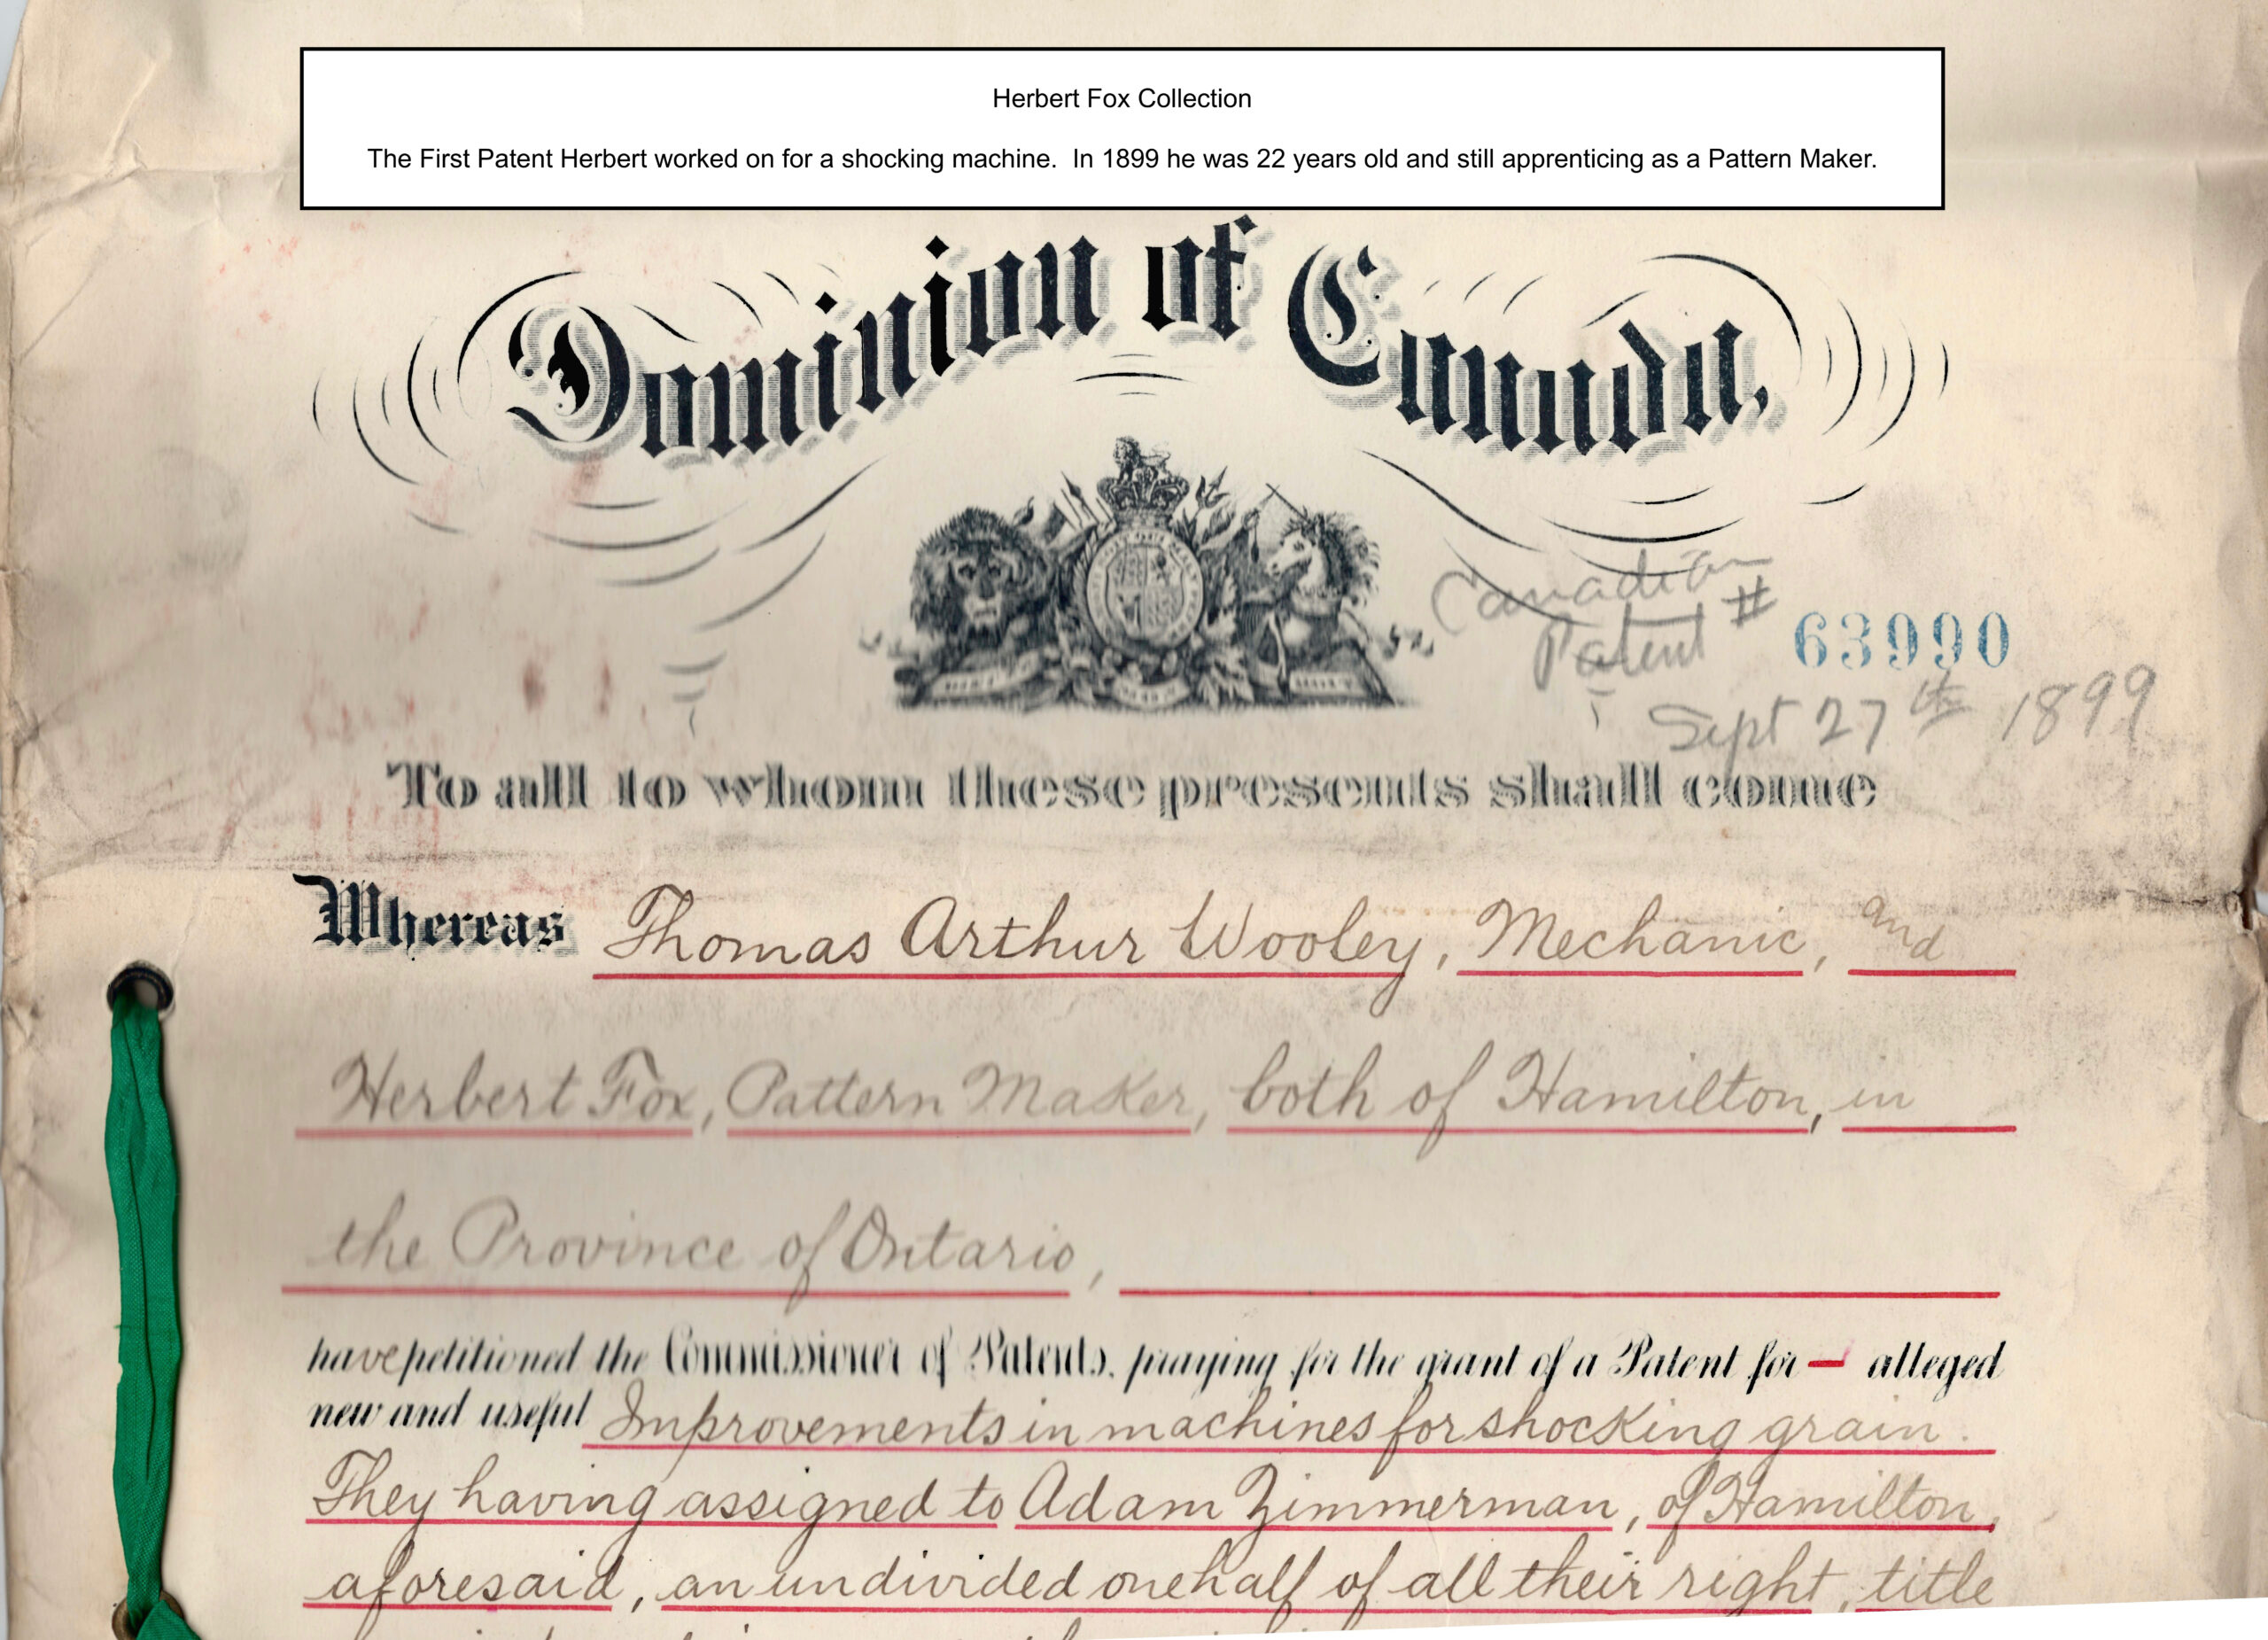 Herbert Fox Collection
The First Patent Herbert worked on for a shocking machine.  In 1899 he was 22 years old and still apprenticing as a Pattern Maker.
Dominion of Canada,
Canadian
Patent #
63990
Sept 27th 1899
To all to whom these presents shall come
Whereas Thomas Arthur Wooley, Mechanic, and
Herbert Fox, Pattern Maker, both of Hamilton, in
the Province of Ontario,
have petitioned the Commissioner of Patents, praying for the grant of a Patent for — alleged
new and useful Improvements in machines for shocking grain.
They having assigned to Adam Zimmerman, of Hamilton,
aforesaid, an undivided onehalf of all their right, title